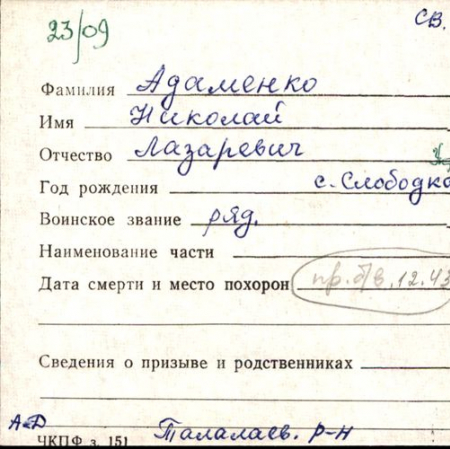 23/09
св.
Фамилия Адаменко
Имя Николай
Отчество Лазаревич
Год рождения с. Слободка
Воинское звание ряд.
Наименование части
Дата смерти и место похорон пр. б/в. 12.43
Сведения о призыве и родственниках
АД
ЧКПФ з. 151 Талалаев. р-н